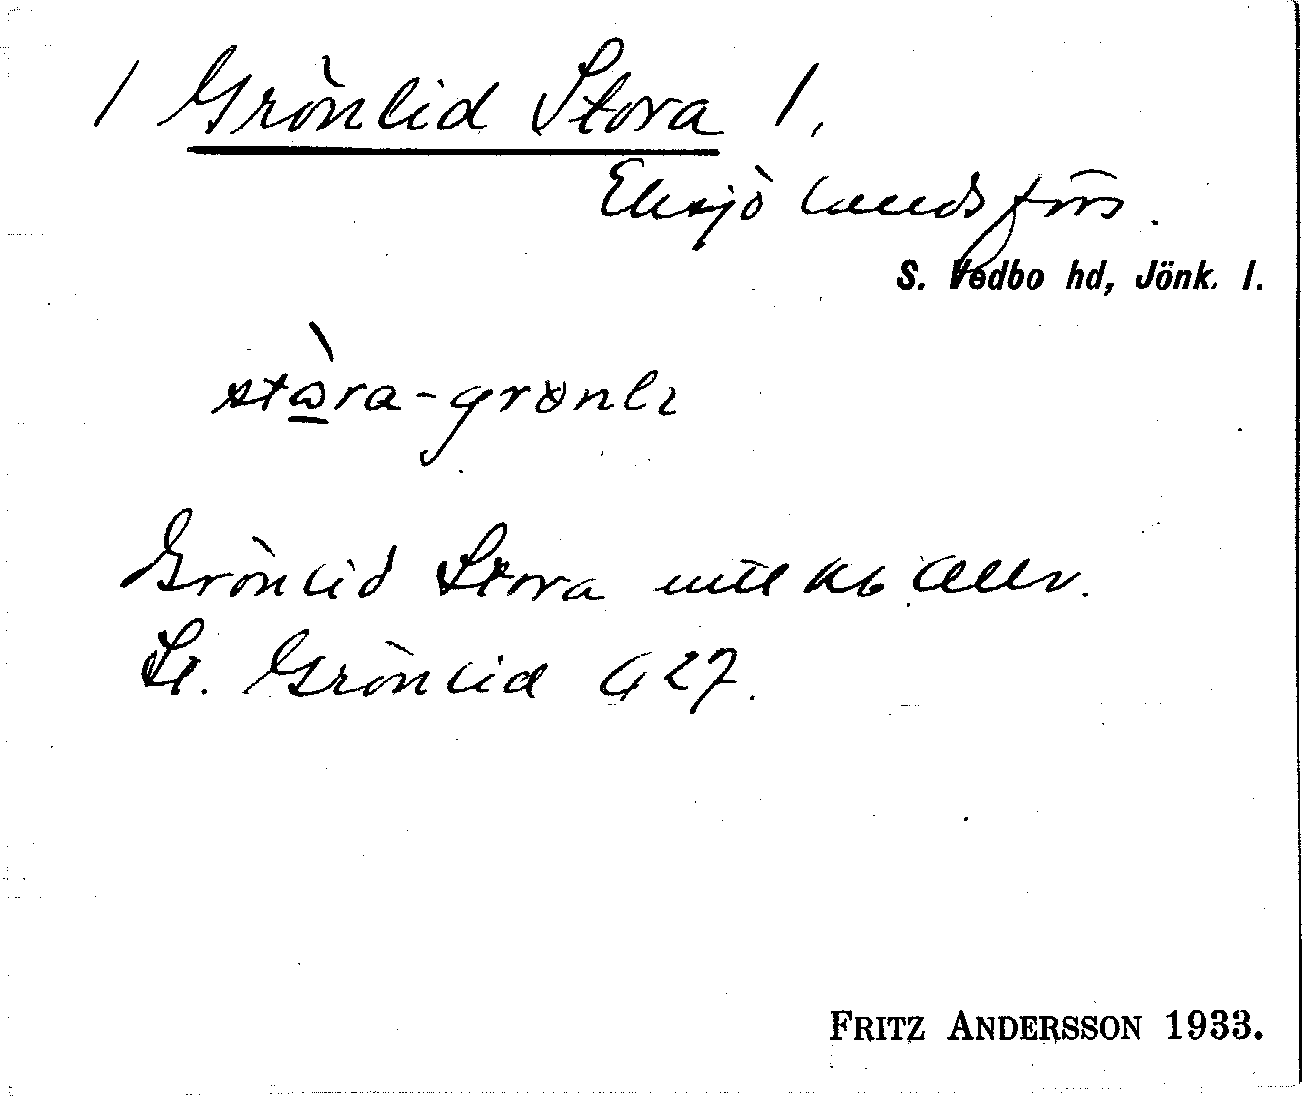 / Grönlid Stora /,
Eksjö landsförs.
S. Vedbo hd, Jönk. l.
stὼ̲ra-grɵnlɩ
Grönlid Stora
St. Grönlid G 27.
FRITZ ANDERSSON 1933.